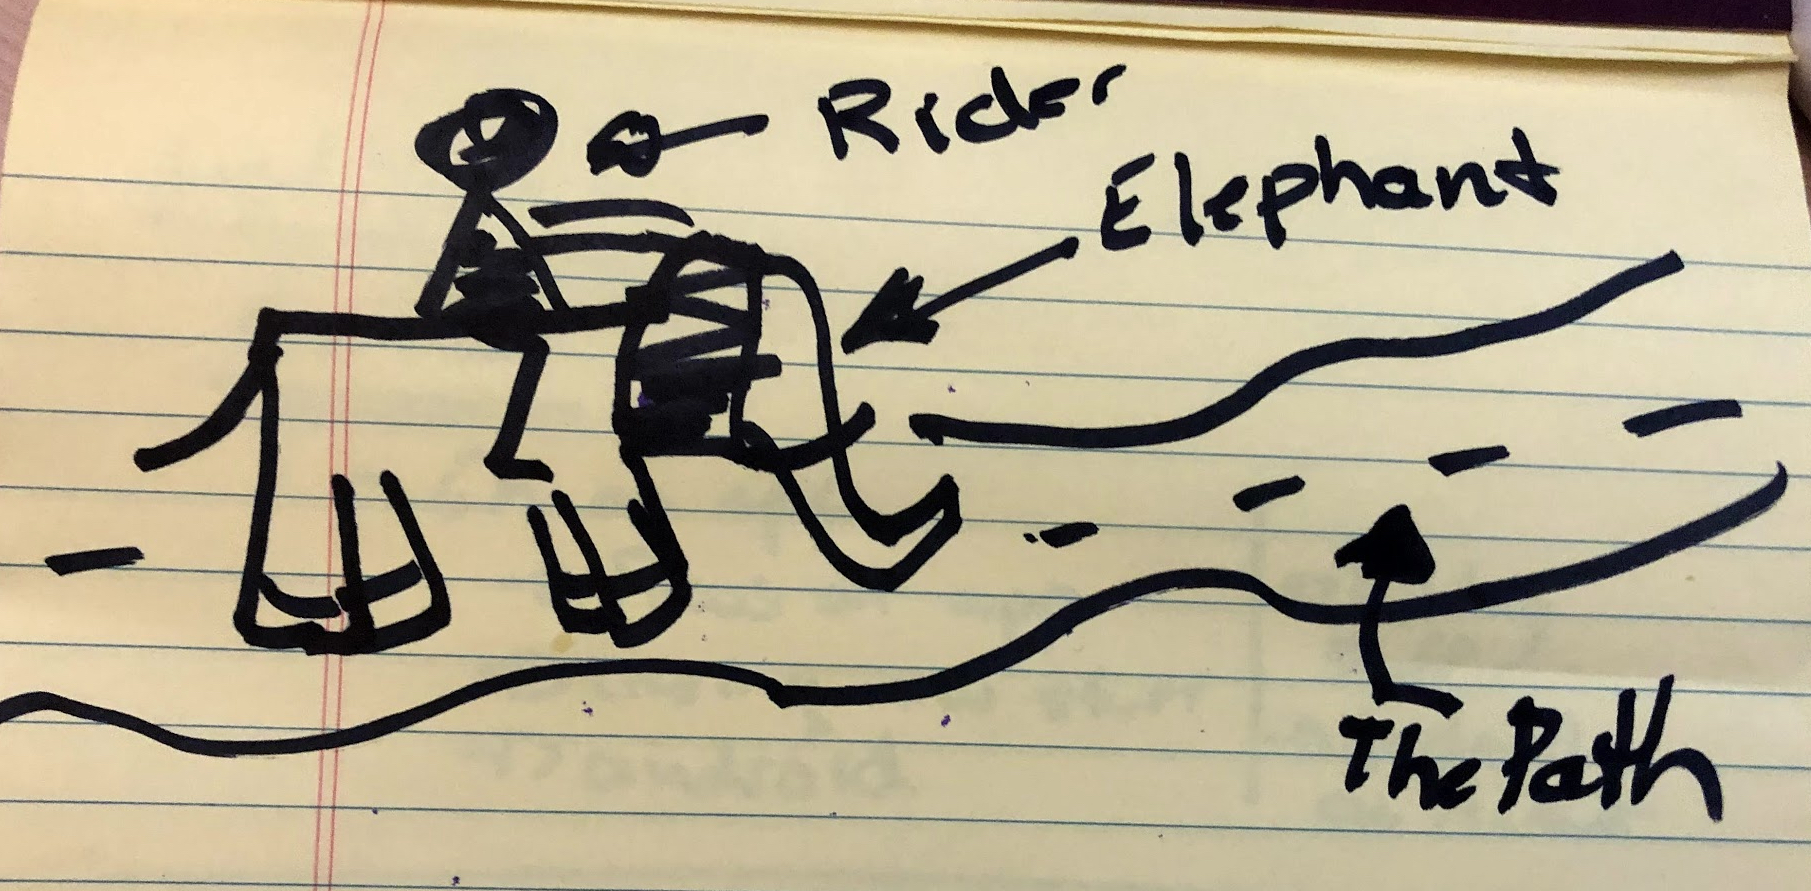 Rider
Elephant
The Path